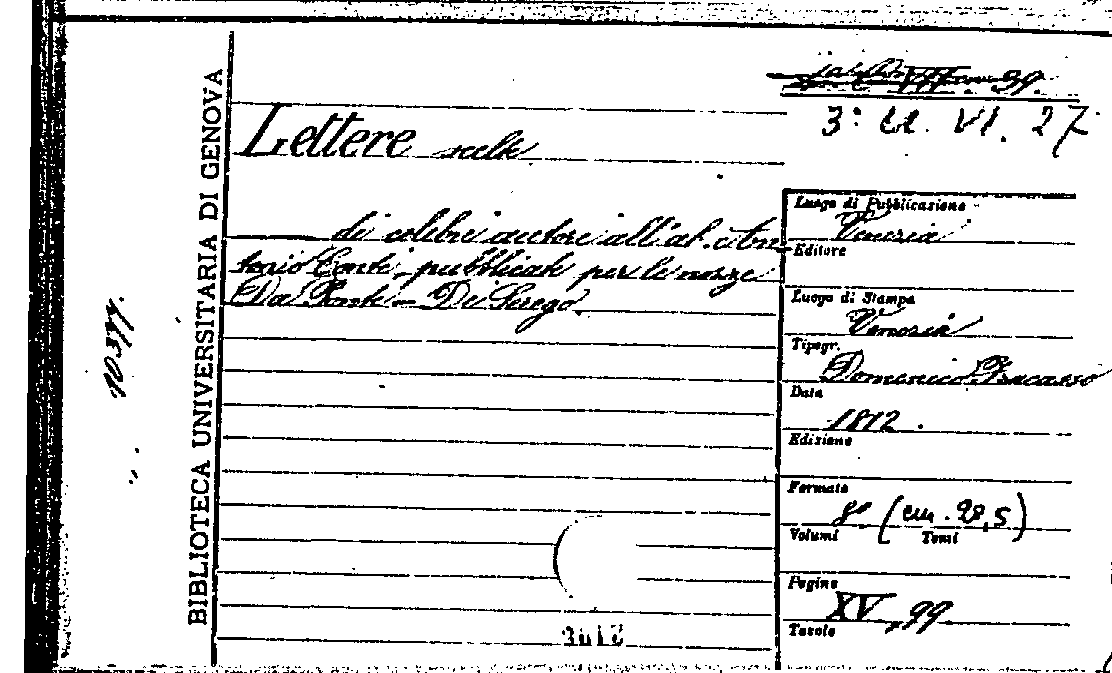 BIBLIOTECA UNIVERSITARIA DI GENOVA
39.
3ª Cl. VI. 27
Lettere scelte
di celebri autori all'ab. Anto
tonio Conti pubblicate per le nozze
Da Ponte - Di Serego.
Luogo di Pubblicazione
Venezia
Editore
Luogo di Stampa
Venezia
Tipogr.
Domenico Fracasso
Data
1812.
Edizione
Formato
8° (cm. 28,5)
Volumi Tomi
Pagine
XV, 99
Tavole